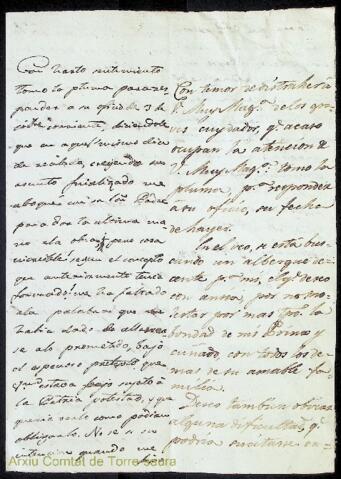 Con harto sentimiento
tomo la pluma para res
ponder a su oficio de 3 de
este corriente, diciendole
que en aquel mismo dia
de recibirla, creyendo un
asunto finalizado me
aboqué con su
para dar la ultima ma
no ala obra; pero cosa
increible! segun el concepto
que anteriormente tenia
formado! me ha faltado
ala palabra que me
habia dado de
se alo prometido, bajo
el especioso pretexto, que
sujeto à
la Patria potestad, y que
queria verle como podian
obligarlo. No se si su
intencion quando me
Con temor de distraher à
V. Muy Mag.ca de los gra-
ves cuydados, q.e acaso
ocupan la atencion de
V. Muy Mag.ca tomo la
pluma, p.a responder
à su oficio, su fecha
de hayer.
En el se está bus
cando un albergue de-
cente p.a mi, el q.e deseo
con ansia, por no mo-
lestar por mas tpo. la
bondad de mi Primo y
cuñado, con todos los de-
mas de su amable fa-
milia.
Deseo tambien obviar
alguna dificultad, q.e
podria suscitarse en-
Arxiu Comtat de Torre-Saura